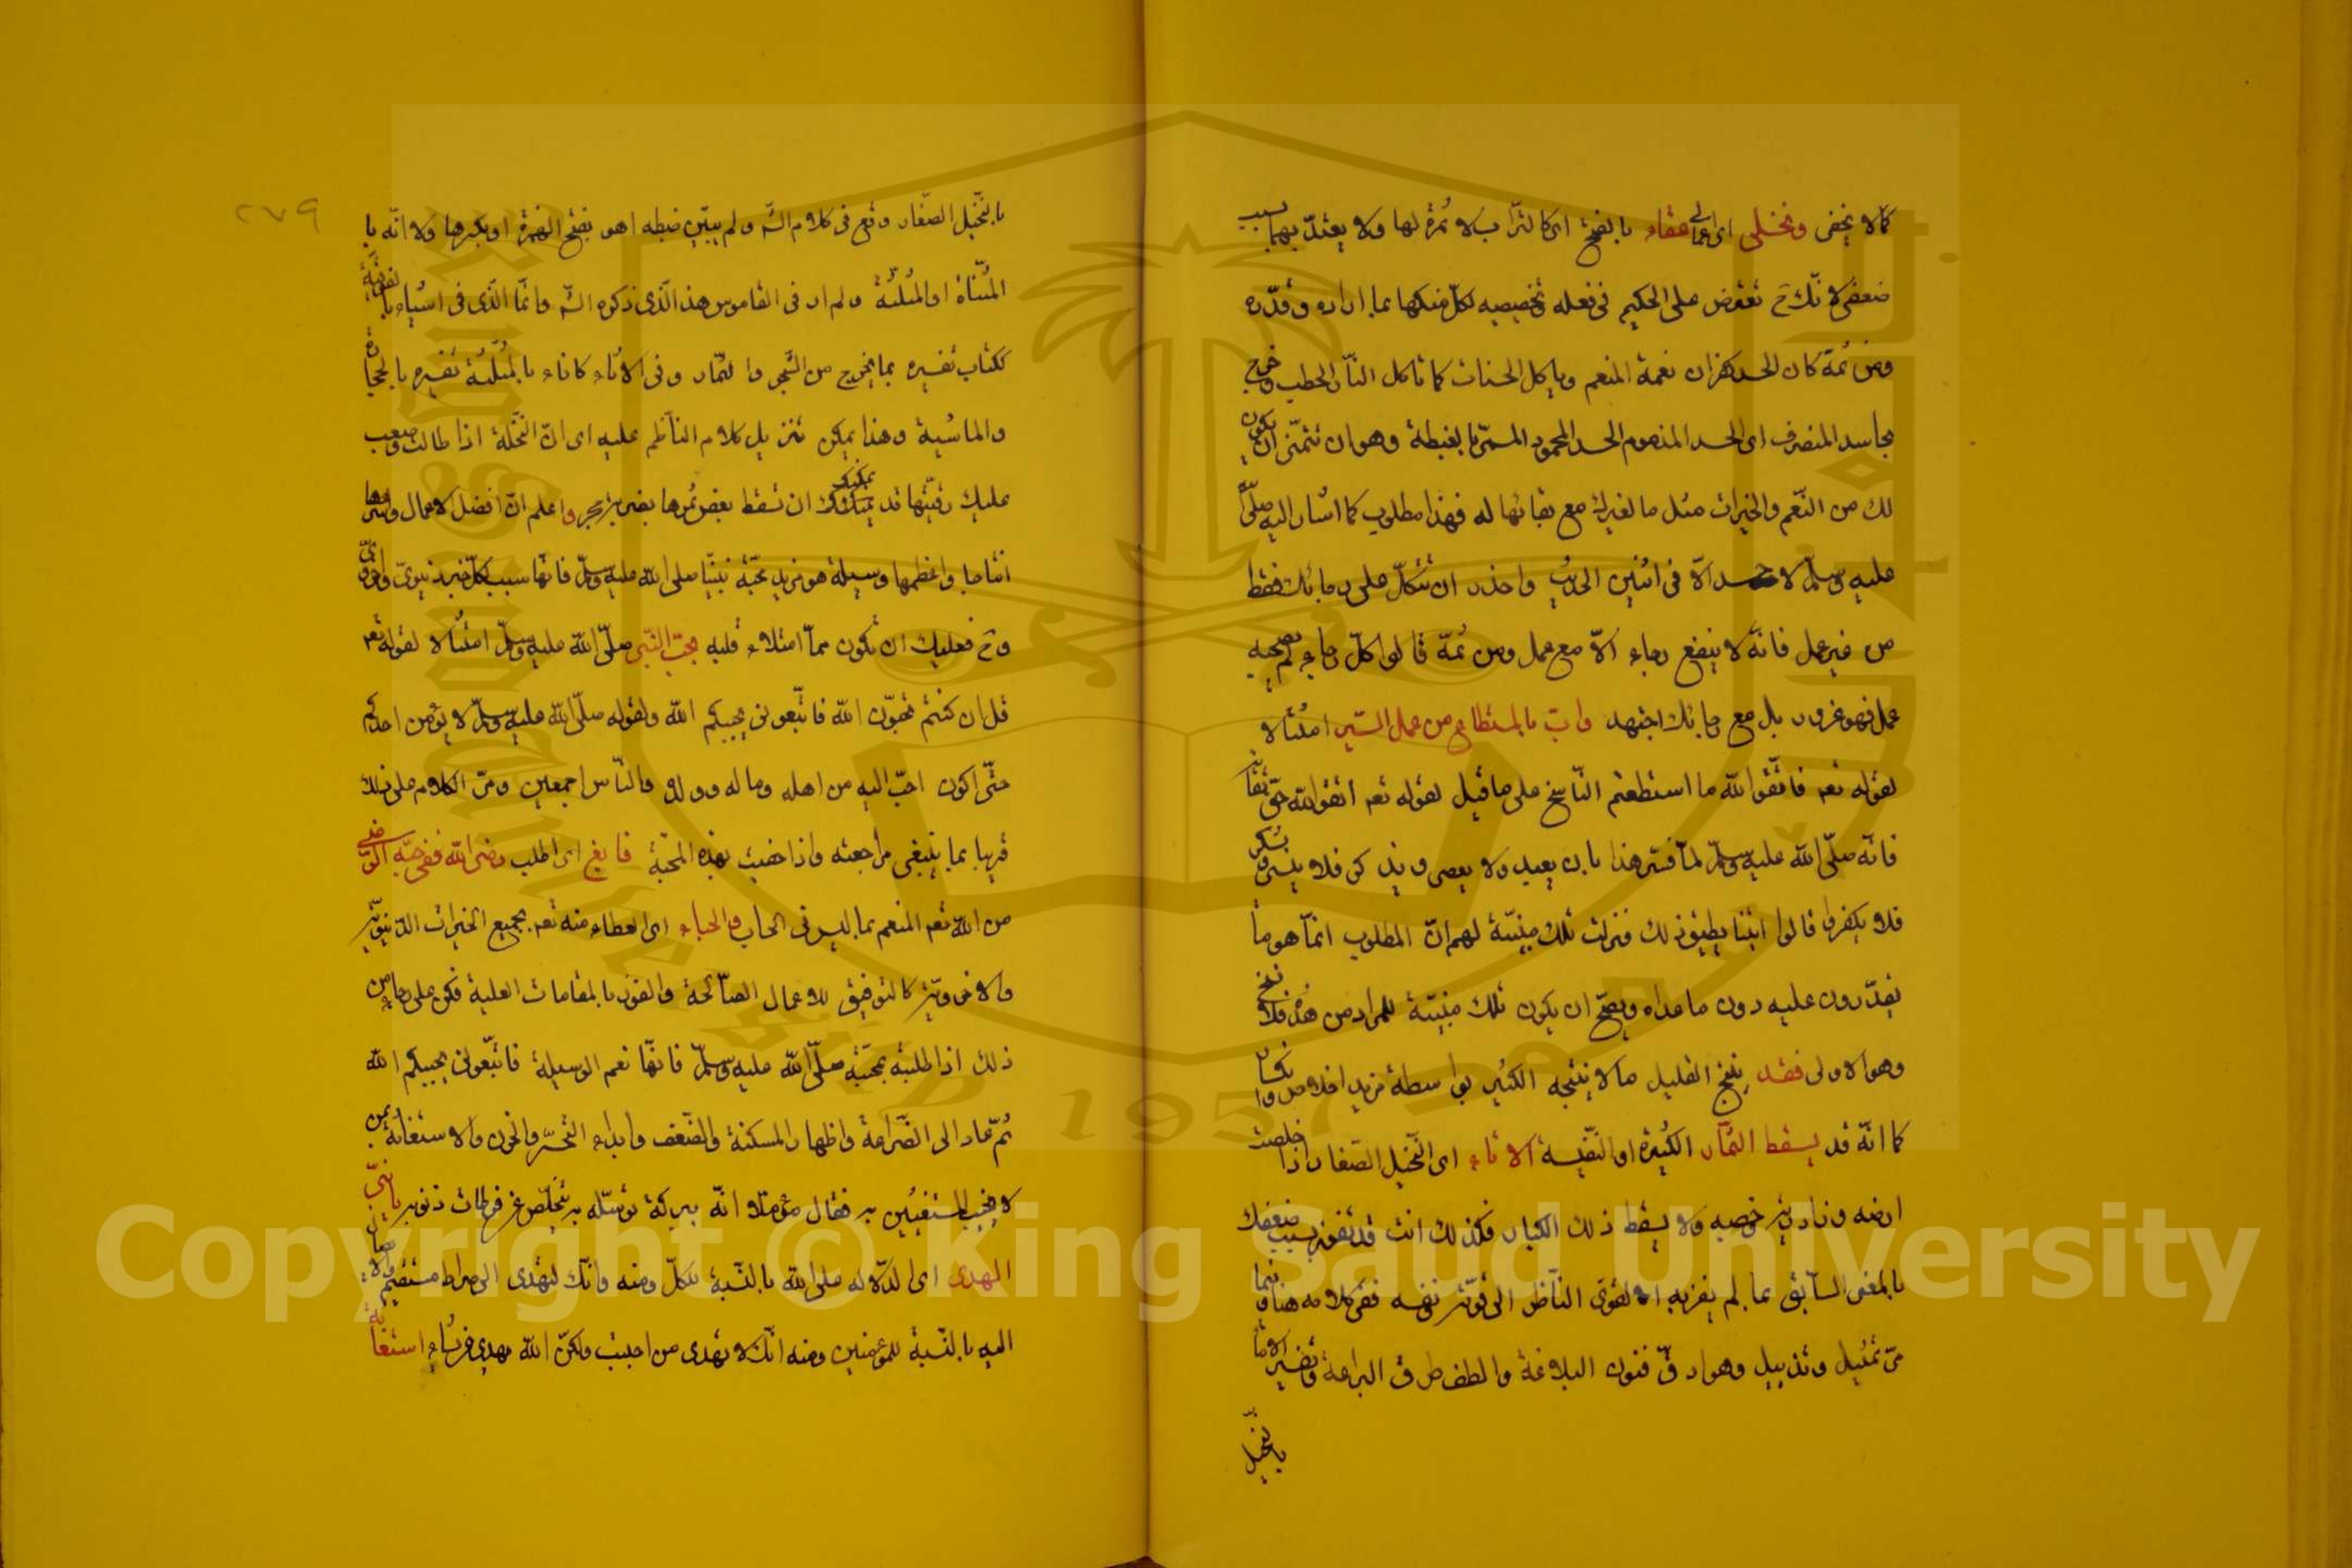 كما لا يخفى ونخلى اى اعمالى عفاء بالفتح اى كالتراب لا ثمرة لها ولا يعتدّ بها بسبب
ضعفى لانّك ح تعترض على الحكيم فى فعله وتخصيصه لكلّ منكما بما اراده وقدّره
ومن ثمّة كان الحسد كفران نعمة المنعم وياكل الحسنات كما تاكل النّار الحطب وخرج
بحاسد المنصرف الى الحسد المذموم الحسد المحمود المسمّى بالغبطة وهو ان تتمنّى ان يكون
لك من النّعم والخيرات مثل ما لغيرك مع بقائها له فهذا مطلوب كما اشار اليه صلّى اللّه
عليه وسلّم لا حسد الّا فى اثنين الحديث واحذر ان تتكل على رجائك فقط
من غير عمل فانّه لا ينفع رجاء الّا مع عمل ومن ثمّة قالوا كلّ رجاء لم يصحبه
عمل فهو غرور بل مع رجائك اجتهد وات بالمستطاع من عمل البّر امتثالا
لقوله تعم فاتّقوا اللّه ما استطعتم النّاسخ على ما قيل لقوله تعم اتقوا اللّه حقّ تقاته
فانّه صلّى اللّه عليه وسلّم لمّا فسّر هذا بان يعبد ولا يعصى ويذكر فلا ينسى ويشكر
فلا يكفر قالوا ايّنا يطيق ذلك فنزلت تلك مبيّنة لهم انّ المطلوب انّما هو ما
يقدّرون عليه دون ما عداه ويصحّ ان يكون تلك مبيّنة للمراد من هذه فلا نسخ
وهو الاولى فقد ينتج القليل ما لا ينتجه الكثير بواسطة مزيد اخلاص وانكسار
كما انّه قد يسقط الثّمار الكثيرة او النّفيسة الاتاء اى النّخيل الصّغار اذا خلصت
ارضه وزاد خصبه ولا يسقط ذلك الكبار فكذلك انت قد تفوز بسبب ضعفك
بالمعنى السّابق بما لم يفز به القوىّ النّاظر الى قوّة نفسه ففى كلامه هنا وفيما
مرّ تمثيل وتذييل وهو ادقّ فنون البلاغة والطف طرق البراعة وتفسير الاتاء
بالنّخيل
بالنّخيل الصّغار وقع فى كلام الش ولم يبيّن ضبطه اهو بفتح الهمزة او بكسرها ولا انّه با
المثنّاة او المثلثّة ولم ار فى القاموس هذا الّذى ذكره الش وانّما الّذى فى اتياء بالفوقيّة
ككتاب تفسيره بما يخرج من الشّجر والثّمار وفى الاثاء كاناء بالمثلّثة تفسيره بالحجارة
والماشية وهذا يمكن تنزيل كلام النّاظم عليه اى انّ النّخلة اذا طالت وصعب
عليك رقيّها قد يمكنك ان تسقط بعض ثمرها بضربة حجر واعلم انّ افضل الاعمال واسرعها
انتاجا واعظمها وسيلة هو مزيد محبّة نبيّنا صلى اللّه عليه وسلّم فانّها سبب لكلّ خير دنيوىّ واخروىّ
وح فعليك ان تكون ممّا امتلاء قلبه بحبّ النّبى صلّى اللّه عليه وسلّم امتثالا لقوله تعم
قل ان كنتم تحبّون اللّه فاتّبعونى يحببكم اللّه ولقوله صلّى اللّه عليه وسلّم لا يؤمن احدكم
حتّى اكون احبّ اليه من اهله وماله وولده والنّاس اجمعين ومرّ الكلام على ذلك
قريبا بما ينبغى مراجعته واذا حضيت بهذه المحبّة فابغ اى اطلب رضى اللّه ففى حبّه الرّضى
من اللّه تعم المنعم بما ليس فى الحساب والحباء اى العطاء منه تعم بجميع الخيرات الدّنيويّة
والاخرويّة كالتوفيق للاعمال الصّالحة والفوز بالمقامات العلية فكن على رجاء من
ذلك اذا طلبته بمحبّته صلّى اللّه عليه وسلّم فانّها نعم الوسيلة فاتّبعونى يحببكم اللّه
ثمّ عاد الى الضّراعة واظهار المسكنة والضّعف وابداء التّحسّر والحزن والاستغاثة بمن
لا يخيب المستغيثين به فقال مؤملا انّه ببركة توسّله به يتخلّص عن فرطات ذنوبه يا نبىّ
الهدى اى الدّلالة على اللّه بالنّسبة للكلّ ومنه وانّك لتهدى الى صراط مستقيم والايصال
اليه بالنّسبة للمؤمنين ومنه انّك لا تهدى من احببت ولكنّ اللّه يهدى من يشاء استغاثة
٢٧٩
Copyright © King Saud University
King Saud University
1957